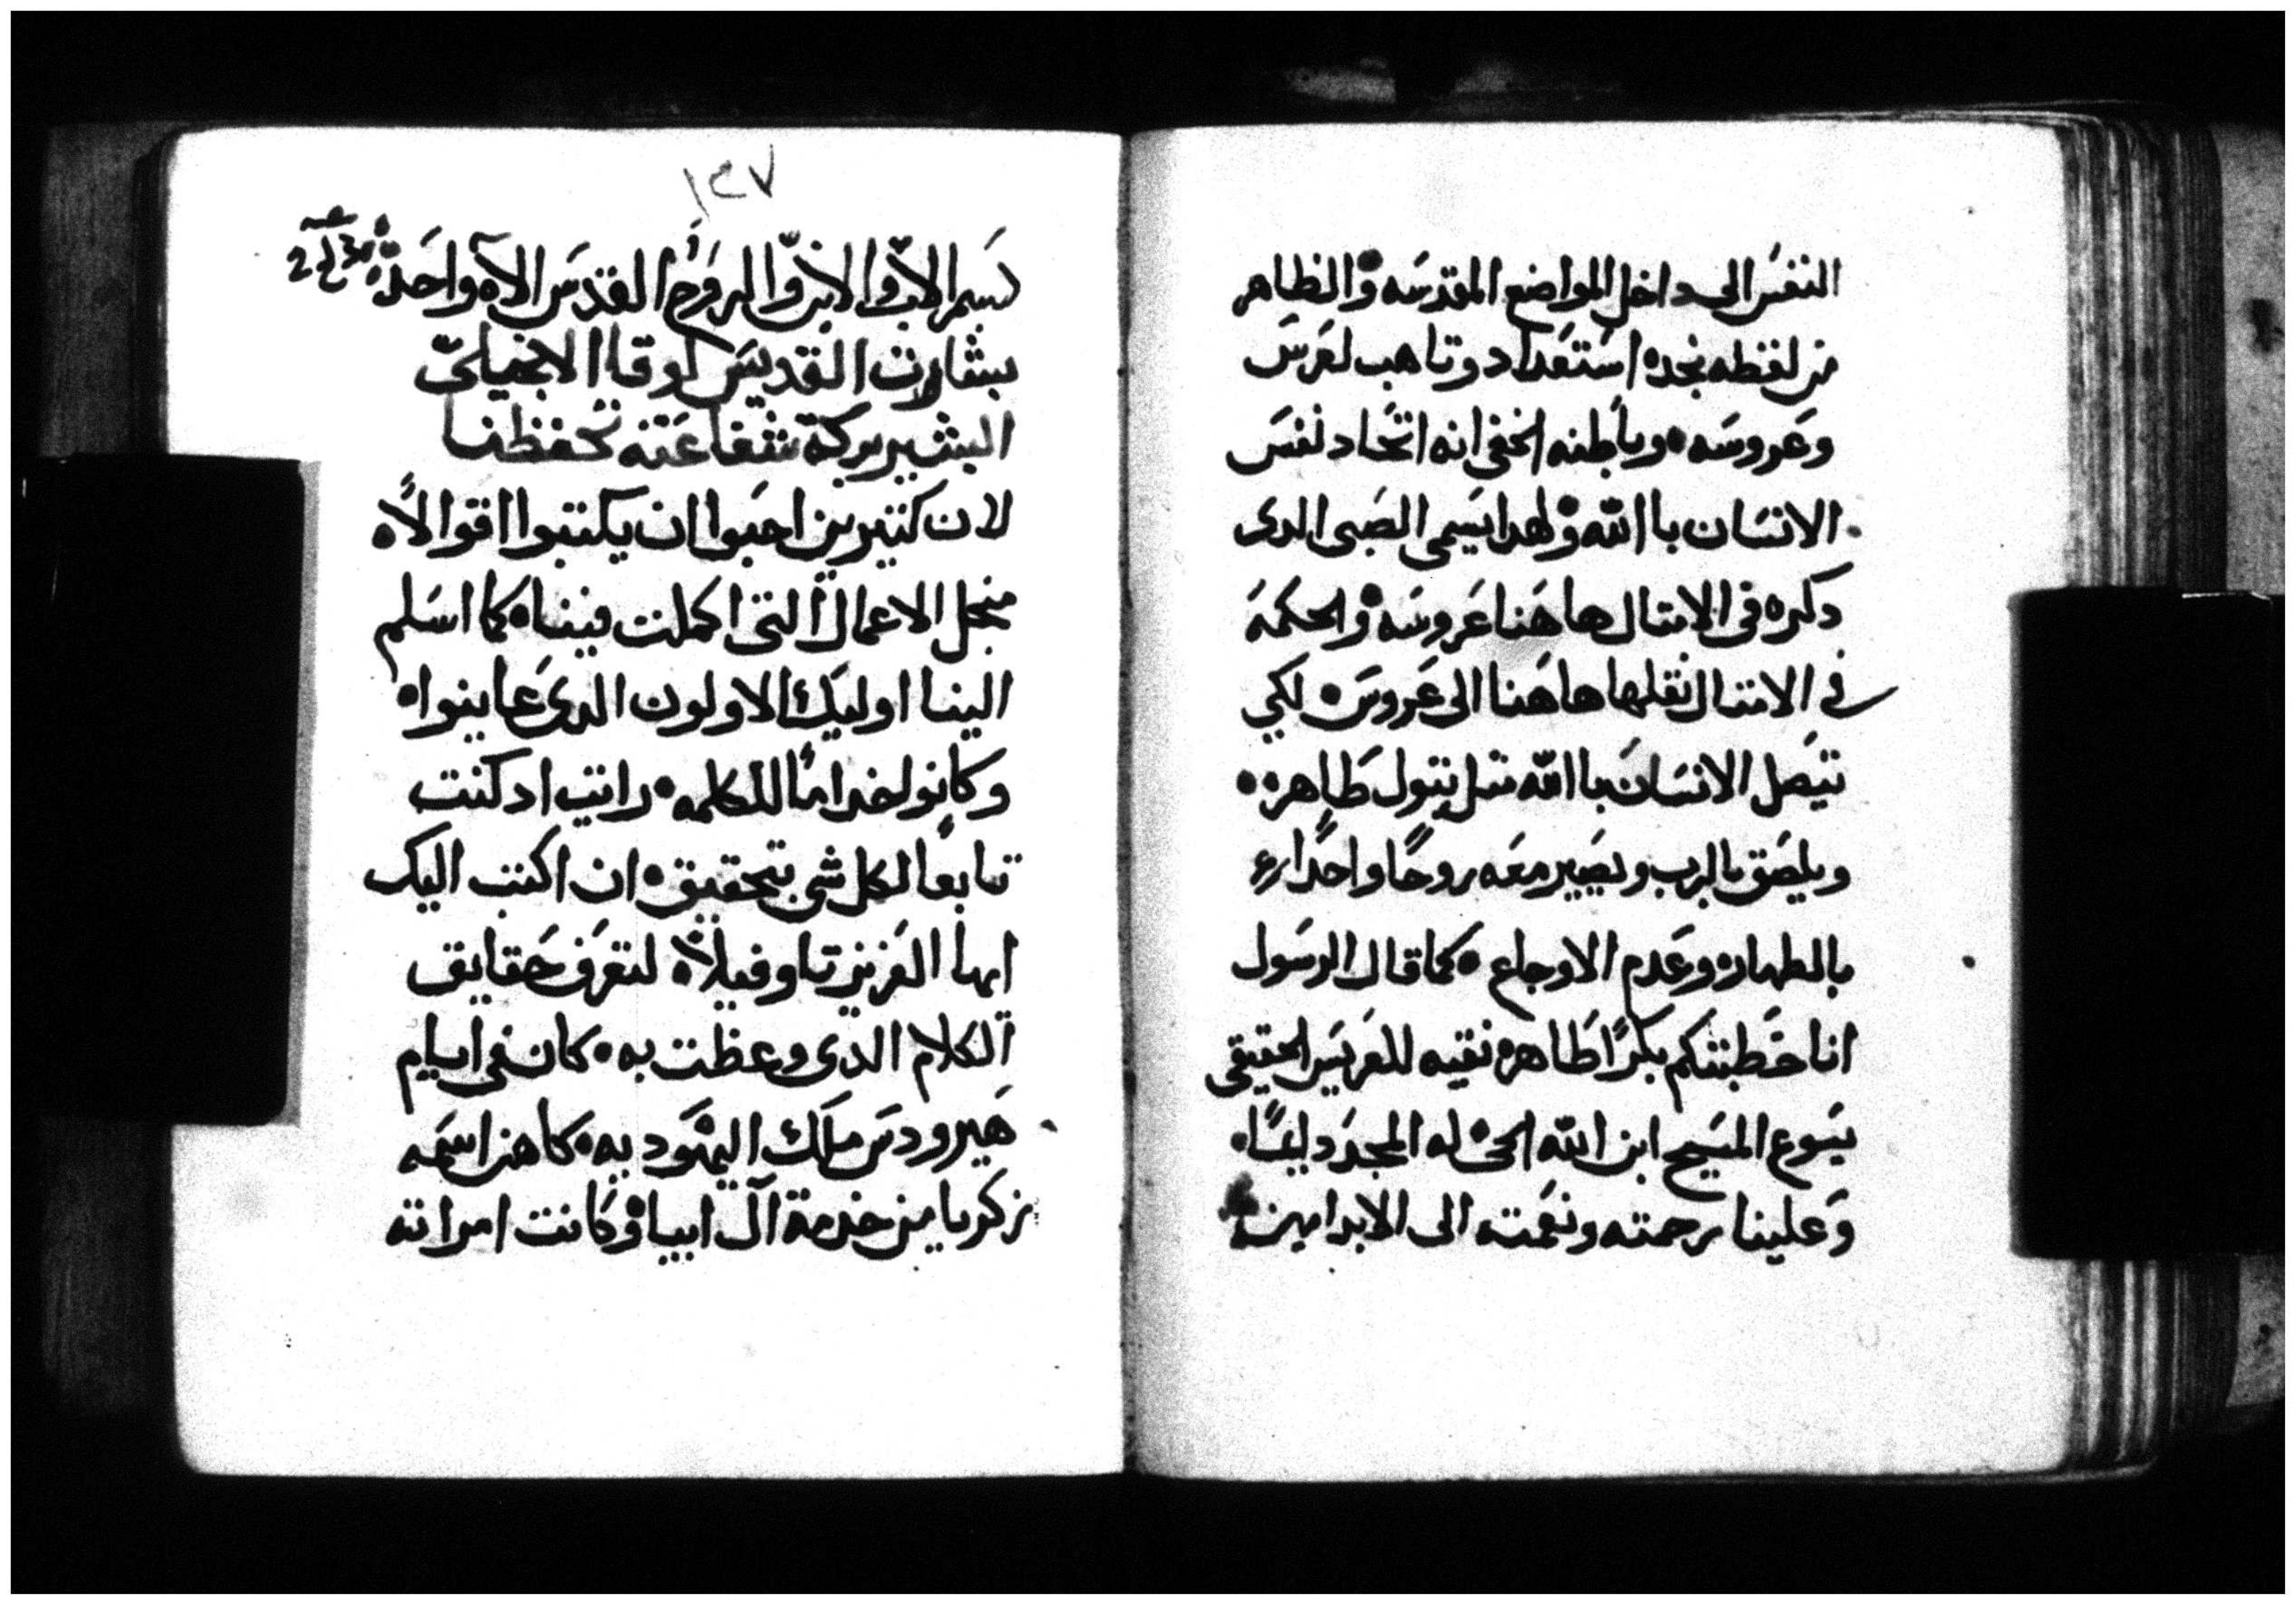 النفس الى داخل المواضع المقدسه والظاهر
من لفظه نجده استعداد وتاهب لعرس
وعروسه وباطنه الخفى انه اتحاد نفس
الانسان باالله ولهدا يسمى الصبى الدى
دكره فى الامتال هاهنا عروسه والحكمه
فى الامتال نقلها هاهنا الى عروس لكي
تتصل الانسان باالله متل بتول طاهره
ويلصق بالرب ويصير معه روحًا واحدًا
بالطهاره وعدم الاوجاع كما قال الرسول
انا خطبتكم بكرًا طاهره نقيه للعريس الحقيقى
يسوع المسيح ابن الله الحى له المجد دايمًا
وعلينا رحمته ونعمته الى الابد امين
١٤٧
بسم الاب والابن والروح القدس الاه واحد
بشارت القديس لوقا الانجيلى
البشير بركة شفاعته تحفظنا
لان كتيرين احبوا ان يكتبوا اقوالاه
منجل الاعمال التى اكملت فيناه كما اسلم
الينا اوليك الاولون الدى عاينوا
وكانو لخدامًا للكلمه رايت اد كنت
تابعًا لكل شى بتحقيق ان اكتب اليك
ايها العزيز تاوفيلاه لتعرف حقايق
الكلام الدى وعظت به كان فى ايام
هيرودس ملك اليهوديه كاهن اسمه
زكريا من خدمة آل ابيا وكانت امراته